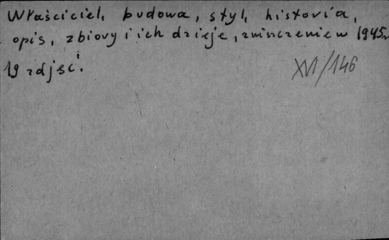 Właściciel, budowa, styl, historia,
opis, zbiory i ich dzieje, zniszczenie w 1945r.
19 zdjęć.
XVI/146